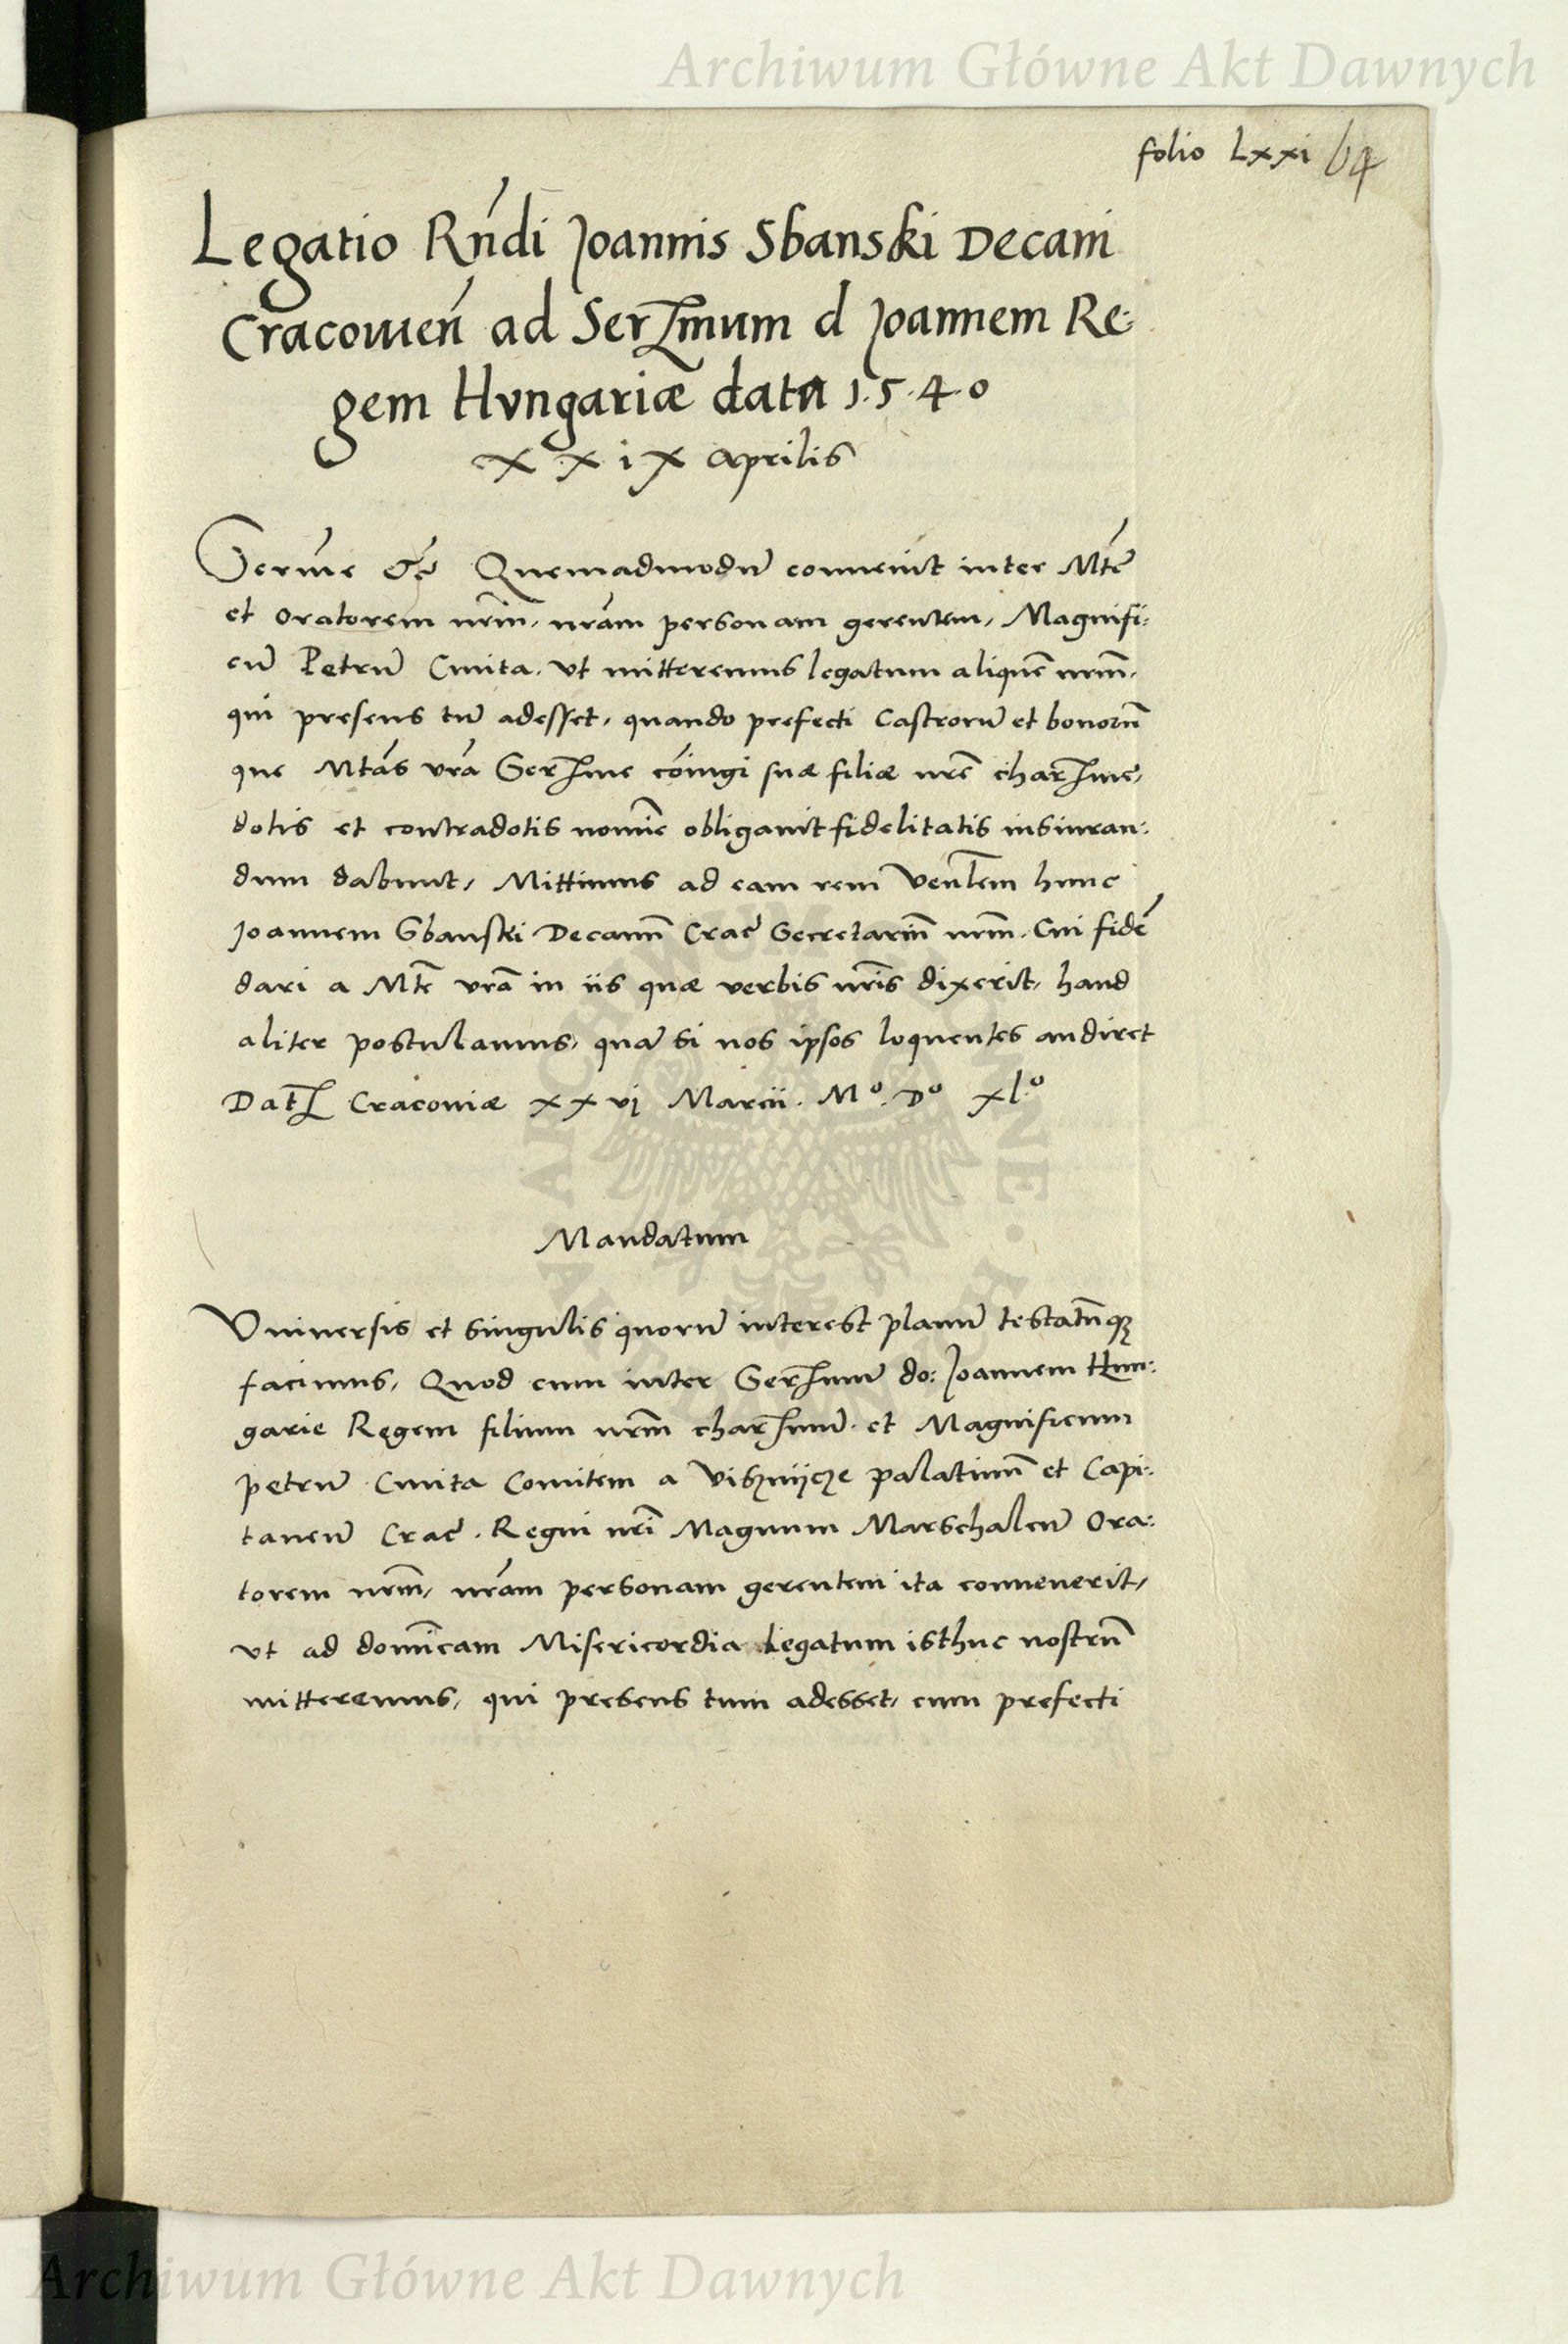 Archiwum Główne Akt Dawnych
folio Lxxi 64
Legatio Rńdi Joannis Sbanski Decani
Cracouień ad Serꝫmum d Joannem Re:
gem Hungariæ data 1.5.4.0
x x i x aprilis
Serm̃e &c̃ Quemadmodũ conuenit inter Mtẽ
et oratorem nr̃m, nr̃am personam gerentem, Magnifi:
cũ Petrũ Cmita, vt mitteremus legatum aliquẽ nr̃m,
qui presens tũ adesset, quando prefecti Castrorũ et bonorũ
que Mtas vr̃a Serꝫme cõiugi suæ filiæ nr̃e charꝫme,
dotis et contradotis nomĩe obligauit fidelitatis iusiuran:
dum dabunt, Mittimus ad eam rem Venlẽm hunc
Joannem Sbanski Decanũ Crac̃ Secretariũ nr̃m. Cui fidẽ
dari a Mte vr̃a in iis quæ verbis nr̃is dixerit, haud
aliter postulamus, quã si nos ipsos loquentes audiret
Datꝫ Cracouiæ xxvj Marcii. Mº. Dº xlº
Mandatum
Vniuersis et singulis quorũ interest planũ testatũqꝫ
facimus, Quod cum inter Serꝫmũ do: Joannem Hun:
garie Regem filium nr̃m charꝫmũ. et Magnificum
petrũ Cmita Comitem a Viszniicze palatinũ et Capi:
taneũ Crac̃. Regni nr̃i Magnum Marschalcũ Ora:
torem nr̃m, nr̃am personam gerentem ita conuenerit,
vt ad domĩcam Misericordia Legatum isthuc nostrũ
mitteremus, qui presens tum adesset, cum prefecti
Archiwum Główne Akt Dawnych